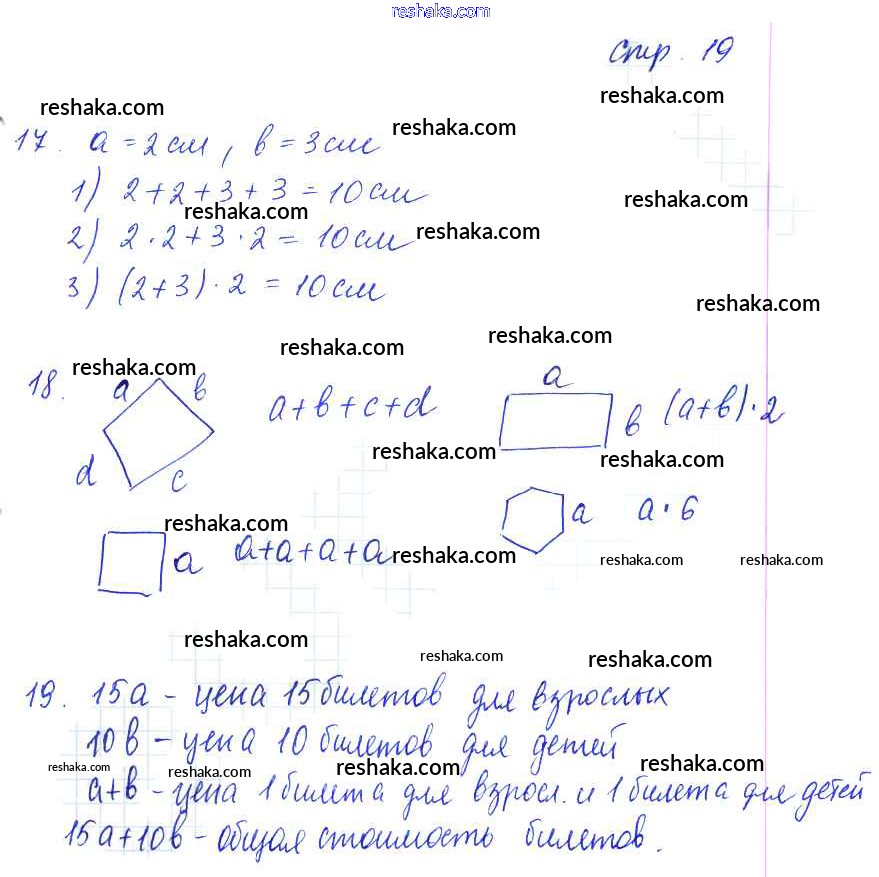 reshaka.com
стр. 19
reshaka.com
reshaka.com
reshaka.com
17. a = 2 см, b = 3 см
1) 2 + 2 + 3 + 3 = 10 см
reshaka.com
reshaka.com
2) 2 · 2 + 3 · 2 = 10 см
reshaka.com
3) (2 + 3) · 2 = 10 см
reshaka.com
reshaka.com
reshaka.com
reshaka.com
18. a b
d c
a + b + c + d
a
b (a + b) · 2
reshaka.com
reshaka.com
reshaka.com
a a + a + a + a
a a · 6
reshaka.com
reshaka.com
reshaka.com
reshaka.com
reshaka.com
reshaka.com
19. 15a – цена 15 билетов для взрослых
10b – цена 10 билетов для детей
reshaka.com
reshaka.com
reshaka.com
reshaka.com
a + b – цена 1 билета для взросл. и 1 билета для детей
15a + 10b – общая стоимость билетов.